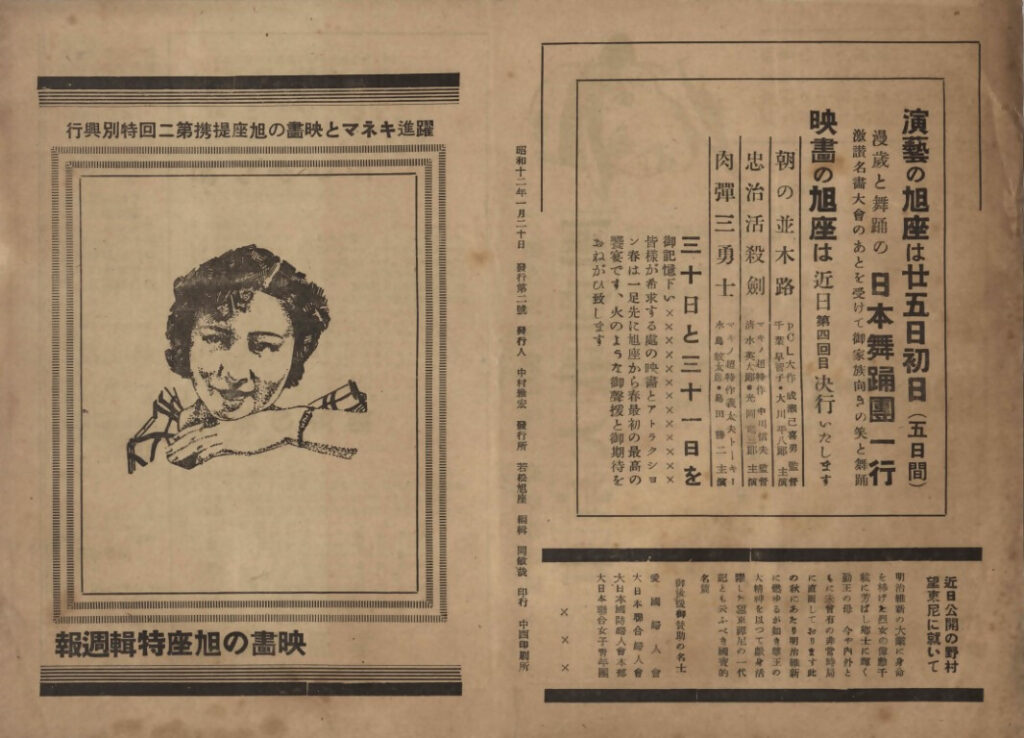 演藝の旭座は廿五日初日（五日間）
漫歳と舞踊の 日本舞踊團一行
激讃名畵大會のあとを受けて御家族向きの笑と舞踊
映畵の旭座は 近日 第四回目 決行いたします
朝の並木路 PCL大作 成瀬己喜男 監督
千葉早智子・大川平八郎 主演
忠治活殺劍 マキノ超特作 中川信夫 監督
清水英太郎・光岡龍三郎 主演
肉彈三勇士 マキノ超特作義太夫トーキー
水島敏太郎・島田勝二 主演
三十日と三十一日を
御記憶下い××××××××××
皆樣が希求する處の映畵とアトラクショ
ン春は一足先に旭座から春最初の最高の
饗宴です、火のような御聲援と御期待を
おねがひ致します
近日公開の野村
望東尼に就いて
明治維新の大業に身命
を捧げた烈女の偉勳千
載に芳ばし郷士に輝く
勤王の母 今や内外と
もに未曾有の非常時局
に直面しております此
の秋にあたり明治維新
に燃ゆるが如き勤王の
大精神を以つて獻身活
躍した望東禪尼の一代
記とも云ふべき國寶的
名篇
御後援御賛助の名士
愛國婦人會
大日本聯合婦人會
大日本國防婦人會本部
大日本聯合女子靑年團
×××
昭和十二年一月二十日 發行第二號 發行人 中村雅宏 發行所 若松旭座 編輯 岡敏哉 印行 中西印刷所
躍進キネマと映畵の旭座提携第二回特別興行
映畵の旭座特輯週報